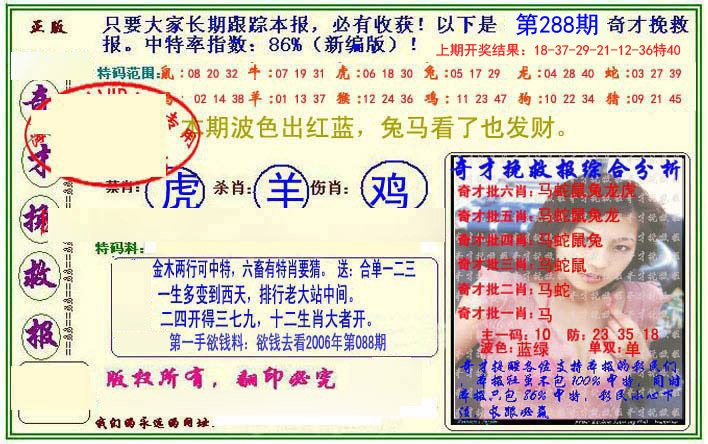 正版
只要大家长期跟踪本报，必有收获！以下是 第288期 奇才挽救
报。中特率指数：86%（新编版）！
上期开奖结果：18-37-29-21-12-36特40
特码范围：鼠：08 20 32 牛：07 19 31 虎：06 18 30 兔：05 17 29 龙：04 28 40 蛇：03 27 39
02 14 38 羊：01 13 37 猴：12 24 36 鸡：11 23 47 狗：10 22 34 猪：09 21 45
本期波色出红蓝，兔马看了也发财。
奇才挽救报
禁肖：虎 杀肖：羊 伤肖：鸡
特码料：
金木两行可中特，六畜有特肖要猜。 送：合单一二三
一生多变到西天，排行老大站中间。
二四开得三七九，十二生肖大者开。
第一手欲钱料：欲钱去看2006年第088期
版权所有，翻印必究
我们的永远的网址.
奇才挽救报综合分析
奇才批六肖：马蛇鼠兔龙虎
奇才批五肖：马蛇鼠兔龙
奇才批四肖：马蛇鼠兔
奇才批三肖：马蛇鼠
奇才批二肖：马蛇
奇才批一肖：马
主一码：10 防：23 35 18
波色：蓝绿 单双：单
奇才挽救各位支持本报的彩民们
，本报虽不包100%中特，同时
本报只包86%中特，彩民小心下
注